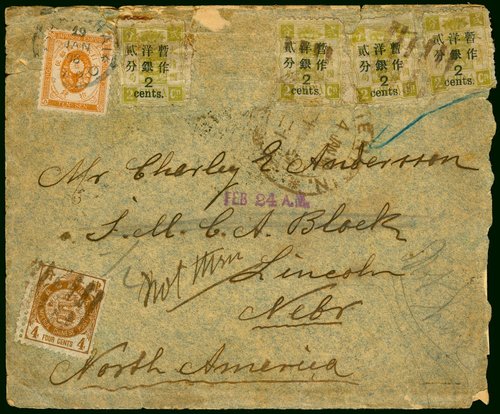 TEN SEN
暫作
洋銀
貳分
2
cents.
暫作
洋銀
貳分
2
cents.
暫作
洋銀
貳分
2
cents.
暫作
洋銀
貳分
2
cents.
JAN
4 MA
Mr Charley E. Anderssen
FEB 24 A.M.
Y. M. C. A. Block
Not then
Lincoln
Nebr
North America
4 FOUR CENTS 4